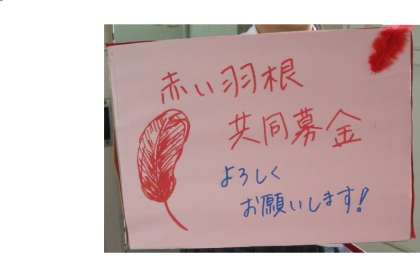 赤い羽根
共同募金
よろしく
お願いします!